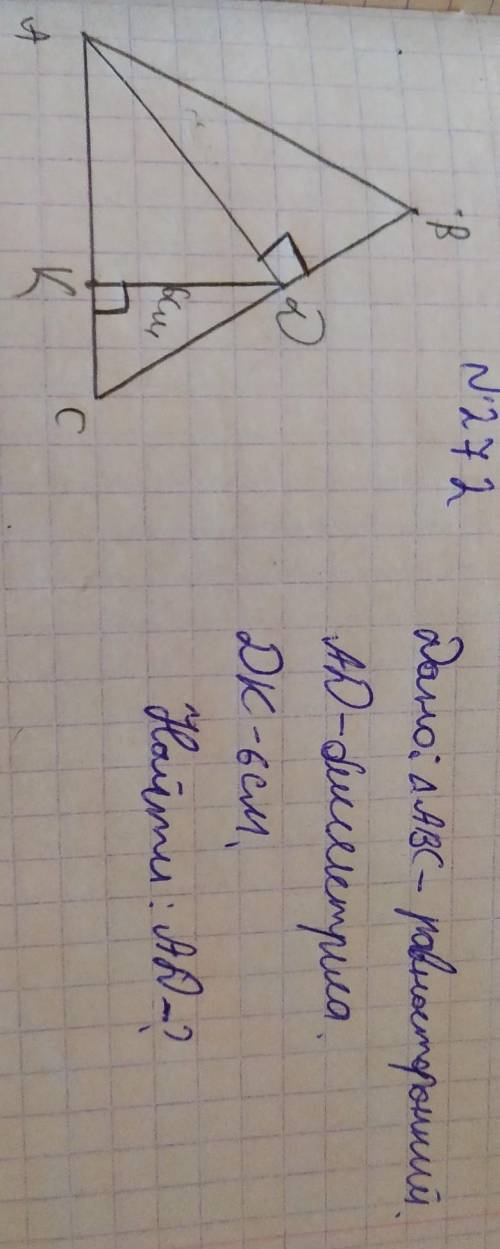 №272
Дано: △ABC - равносторонний.
AD - биссектриса.
DK - 6 см.
Найти: AD - ?
A
B
D
K
C
6см,